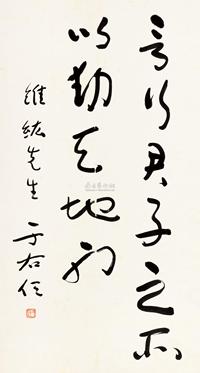 言行君子之所
以動天地也
維紘先生 于右任